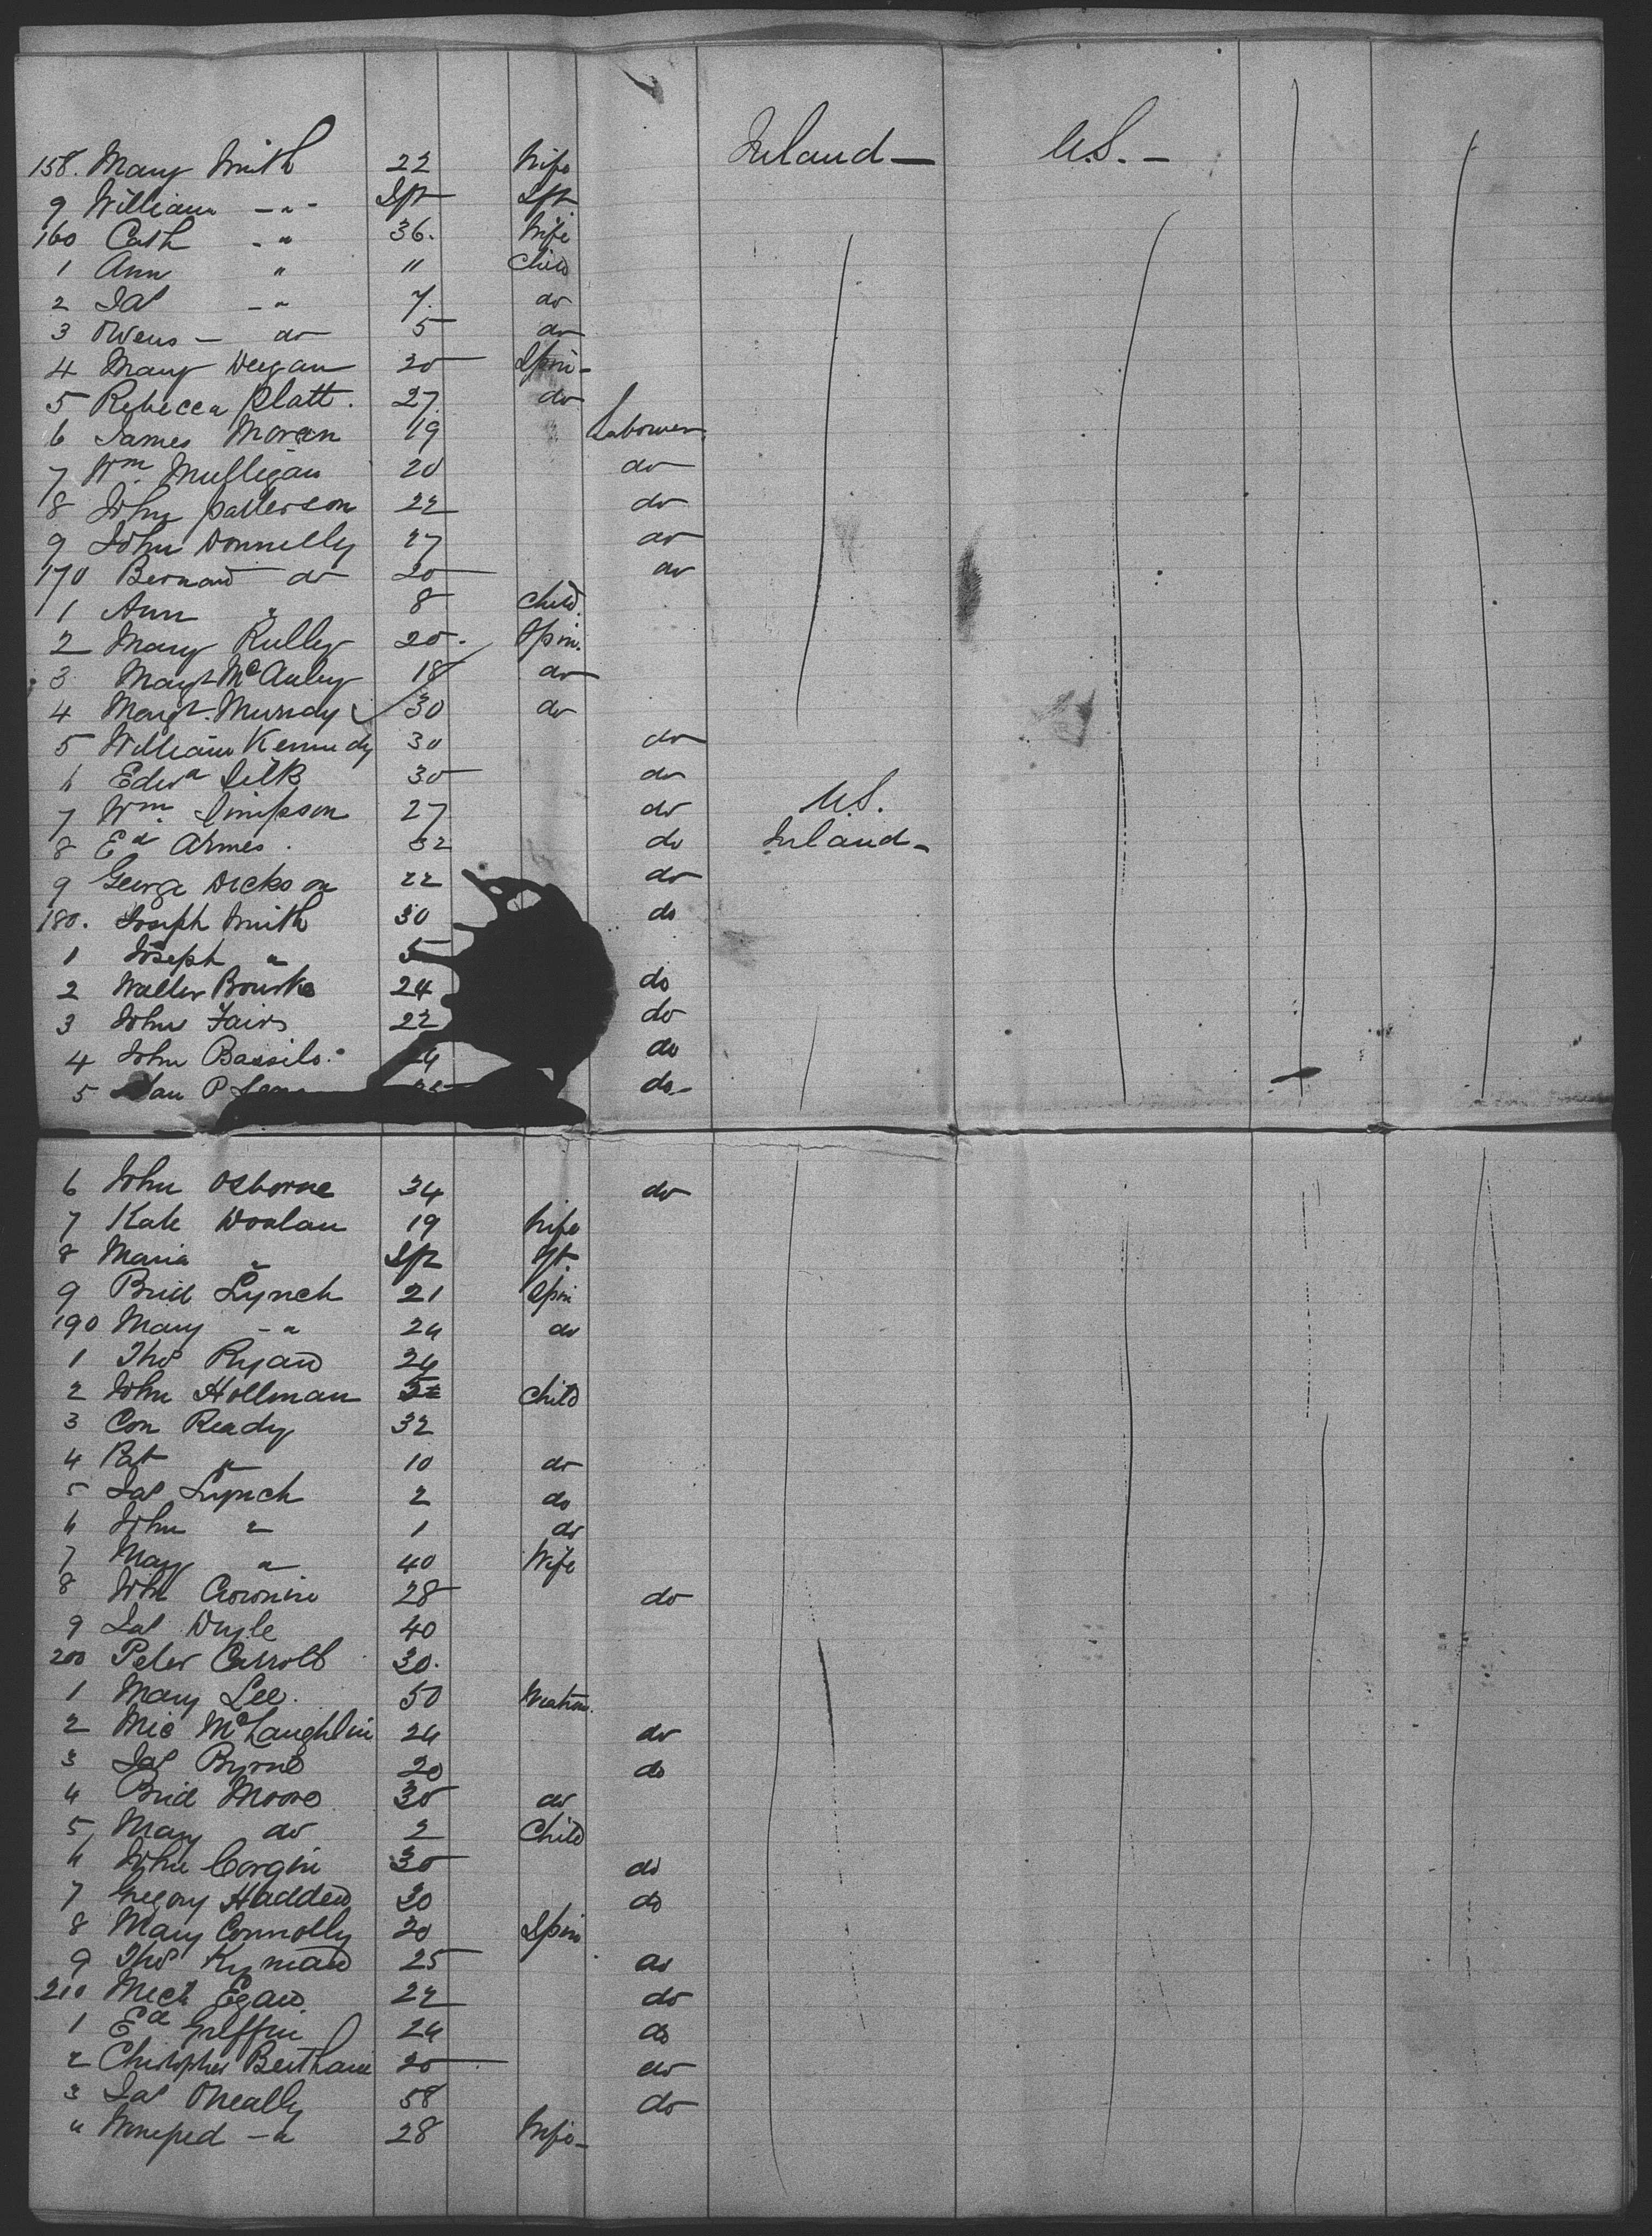 158. Mary Smith 22 Wife Ireland — U.S. —
9 William — " — Inft Inft
160 Cath - " 36. Wife
1 Ann " 11 Child
2 Jas - " 7. do
3 Owens — do 5 do
4 Mary Deegan 20 Spin-
5 Rebecca Platt. 27. do
6 James Moran 19 Labourer
7 Wm. Mulligan 20 do
8 John Patterson 22 do
9 John Donnelly 27 do
170 Bernard do 20 do
1 Ann " 8 Child.
2 Mary Reilly 20. Spin.
3 Margt McAuley 18 do
4 Margt. Mundy 30 do
5 William Kennedy 30 do
6 Edwd Silk 30 do
7 Wm. Simpson 27 do U.S.
8 Ed Armes. 32 do Ireland-
9 George Dickson 22 do
180. Joseph Smith 30 do
1 Joseph " 5
2 Walter Bourke 24 do
3 John Fairs 22 do
4 John do
5 P do-
6 John Osborne 34 do
7 Kate Doolan 19 Wife
8 Maria " Inft Inft.
9 Brid Lynch 21 Spin
190 Mary - " 24 do
1 Thos Ryan 24
2 John Hollman Child
3 Con Ready 32
4 Pat " 10 do
5 Jas Lynch 2 do
6 John " 1 do
7 Mary " 40 Wife
8 John Cronine 28 do
9 Jas Doyle 40
200 Peter Carroll 30.
1 Mary Lee. 50 Matron.
2 Mic McLaughlin 24 do
3 Jas Byrne 20 do
4 Brid Moore 30 do
5 Mary do 2 Child
6 John Corgin 30 do
7 Gregory Hadden 30 do
8 Mary Connolly 20 Spin
9 Thos 25 do
210 Mich Egan 22 do
1 Ed Griffin 24 do
2 Christopher 20 do
3 Jas ONeally 58 do
4 Winefred — " 28 Wife-